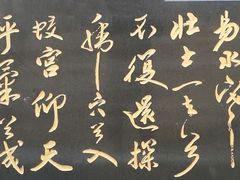 易水寒
壮士一去兮
不復還探
虎穴兮入
蛟宮仰天
呼氣兮成